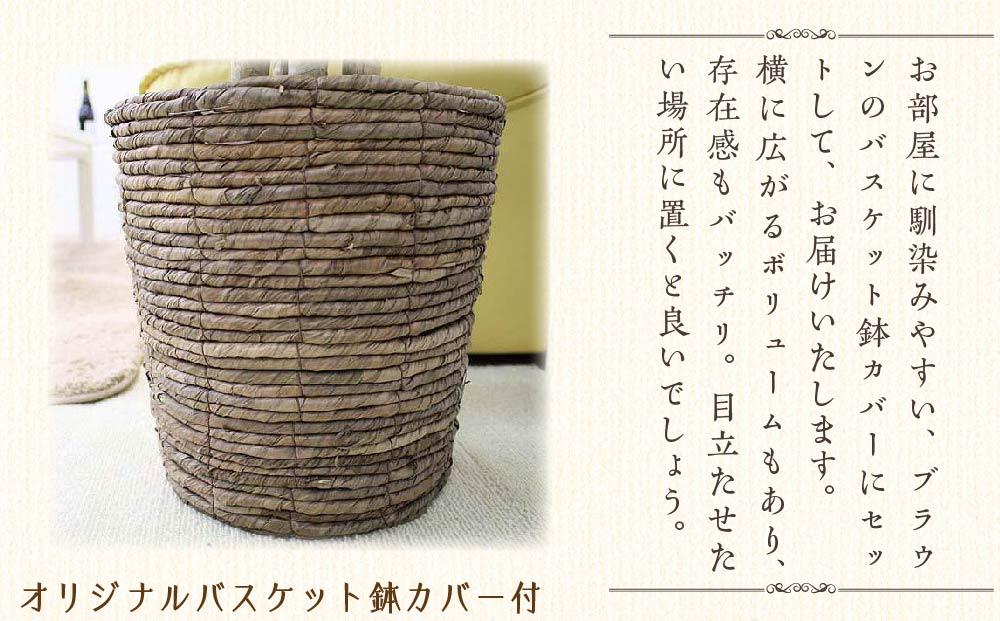 お部屋に馴染みやすい、ブラウ
ンのバスケット鉢カバーにセッ
トして、お届けいたします。
横に広がるボリュームもあり、
存在感もバッチリ。目立たせた
い場所に置くと良いでしょう。
オリジナルバスケット鉢カバー付